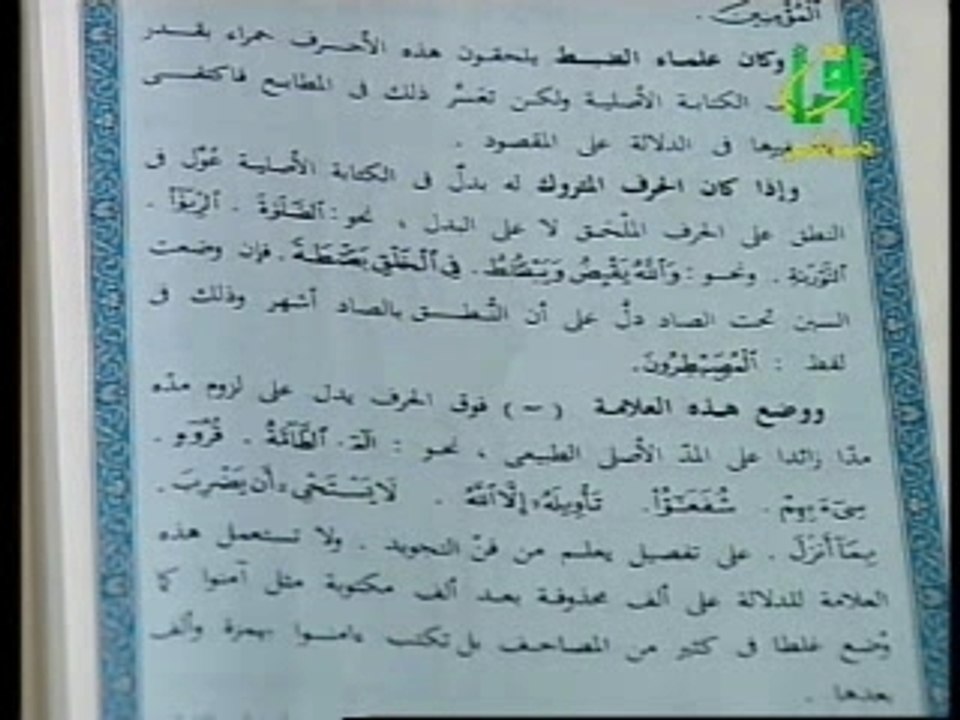 ٱلْمُؤْمِنِينَ .
وكان علماء الضبط يلحقون هذه الأحرف حمراء بقدر
الكتابة الأصلية ولكن تعسّر ذلك فى المطابع فاكتفى
فى الدلالة على المقصود .
وإذا كان الحرف المتروك له بدلٌ فى الكتابة الأصلية عُوّل فى
النطق على الحرف المُلْحَق لا على البدل ، نحو : ٱلصَّلَوٰةَ . ٱلرِّبَوٰا۟ .
ٱلتَّوْرَىٰةِ . ونحو : وَٱللَّهُ يَقْبِضُ وَيَبْصُۜطُ . فِى ٱلْخَلْقِ بَصْۜطَةً . فإن وضعت
السين تحت الصاد دلّ على أن النُّطق بالصاد أشهر وذلك فى
لفظ : ٱلْمُصَۣيْطِرُونَ .
ووضع هذه العلامة ( ~ ) فوق الحرف يدل على لزوم مدّه
مدًّا زائدا على المدّ الأصلى الطبيعى ، نحو : الٓمٓ . ٱلطَّآمَّةُ . قُرُوٓءٍ .
سِىٓءَ بِهِمْ . شُفَعَٰٓؤُا۟ . تَأْوِيلَهُۥٓ إِلَّا ٱللَّهُ . لَا يَسْتَحْىِۦٓ أَن يَضْرِبَ .
بِمَآ أُنزِلَ . على تفصيل يعلم من فنّ التجويد . ولا تستعمل هذه
العلامة للدلالة على ألف محذوفة بعد ألف مكتوبة مثل آمنوا كما
وُضع غلطا فى كثير من المصاحف بل تكتب ءامنوا بهمزة وألف
بعدها .